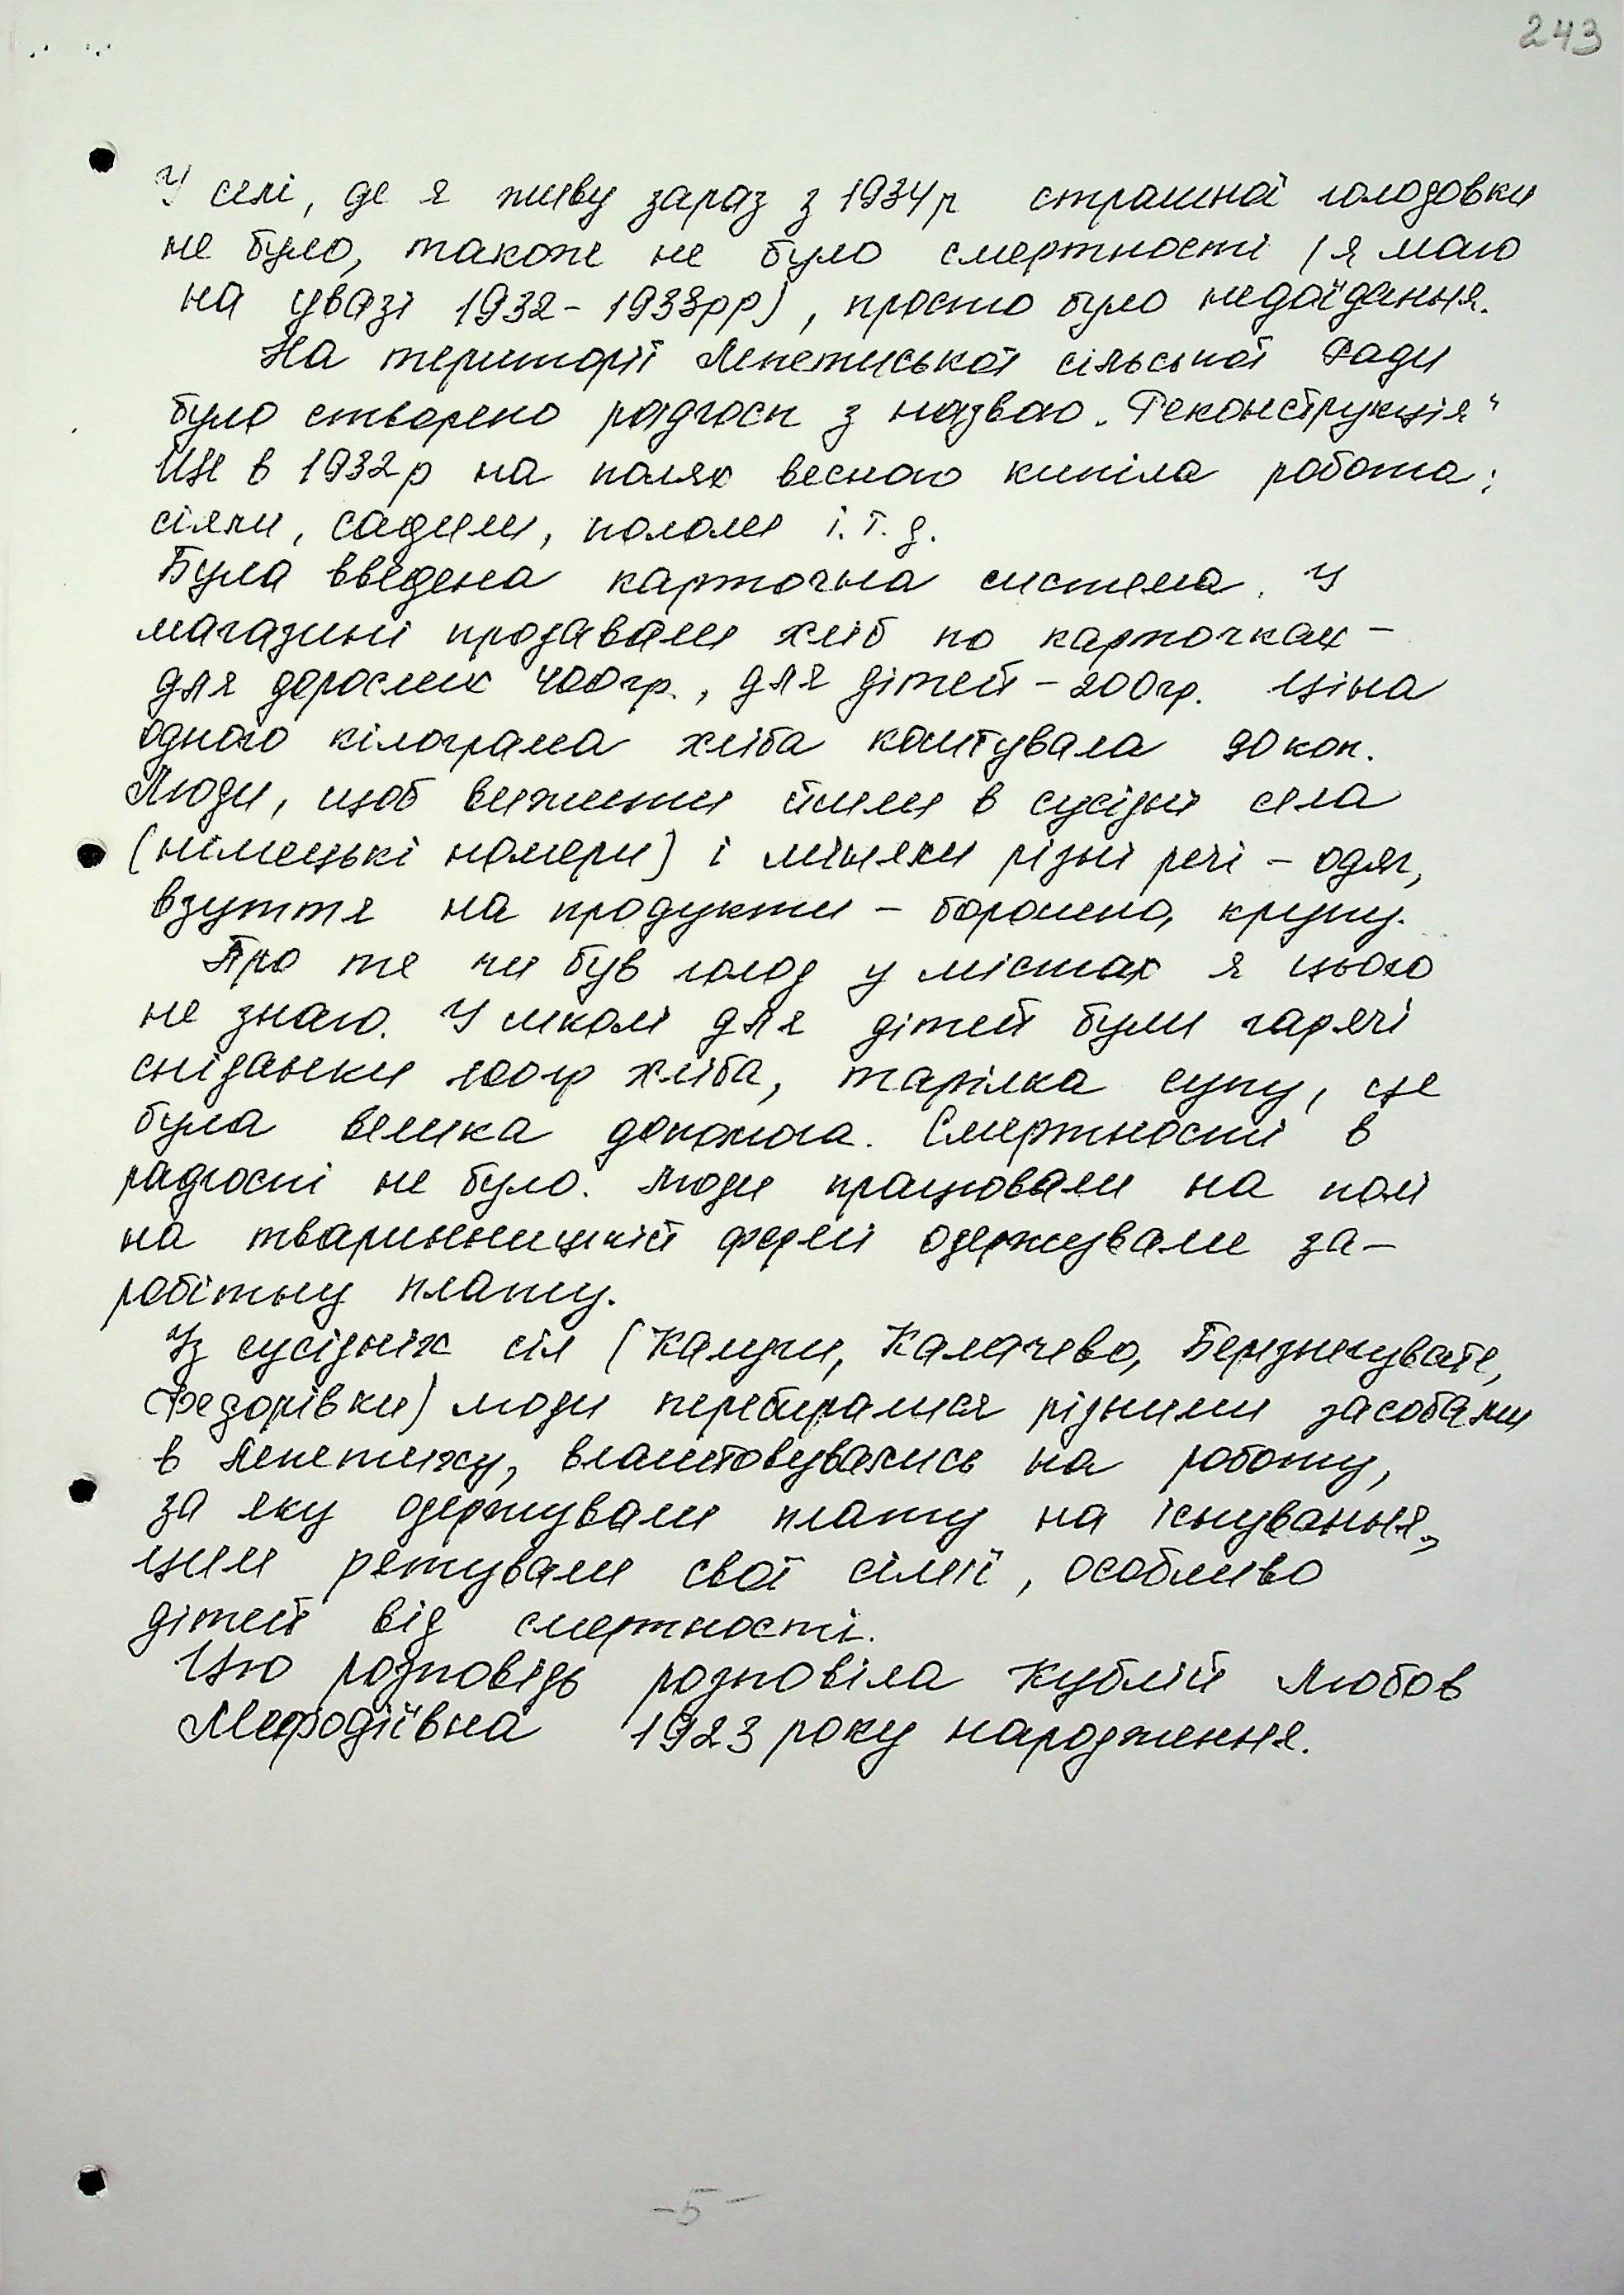 243
У селі, де я живу зараз з 1934р страшної голодовки
не було, також не було смертності (я маю
на увазі 1932-1933рр), просто було недоїдання.
На території Лепетиської сільської Ради
було створено радгосп з назвою „Реконструкція"
Ще в 1932р на полях весною кипіла робота:
сіяли, садили, пололи і.т.д.
Була введена карточна система. У
магазині продавали хліб по карточках –
для дорослих 400гр., для дітей – 200гр. Ціна
одного кілограма хліба коштувала 90 коп.
Люди, щоб вижити йшли в сусідні села
(німецькі номери) і міняли різні речі – одяг,
взуття на продукти – борошно, крупу.
Про те чи був голод у містах я цього
не знаю. У школі для дітей були гарячі
сніданки 100гр хліба, тарілка супу, це
була велика допомога. Смертності в
радгоспі не було. Люди працювали на полі
на тваринницькій фермі одержували за-
робітну плату.
Із сусідніх сіл (Калуги, Калачево, Березнегувате,
Федорівки) люди перебиралися різними засобами
в Лепетиху, влаштовувались на роботу,
за яку одержували плату на існування,
цим рятували свої сімії, особливо
дітей від смертності.
Цю розповідь розповіла Кублій Любов
Мефодіївна 1923 року народження.
-5-